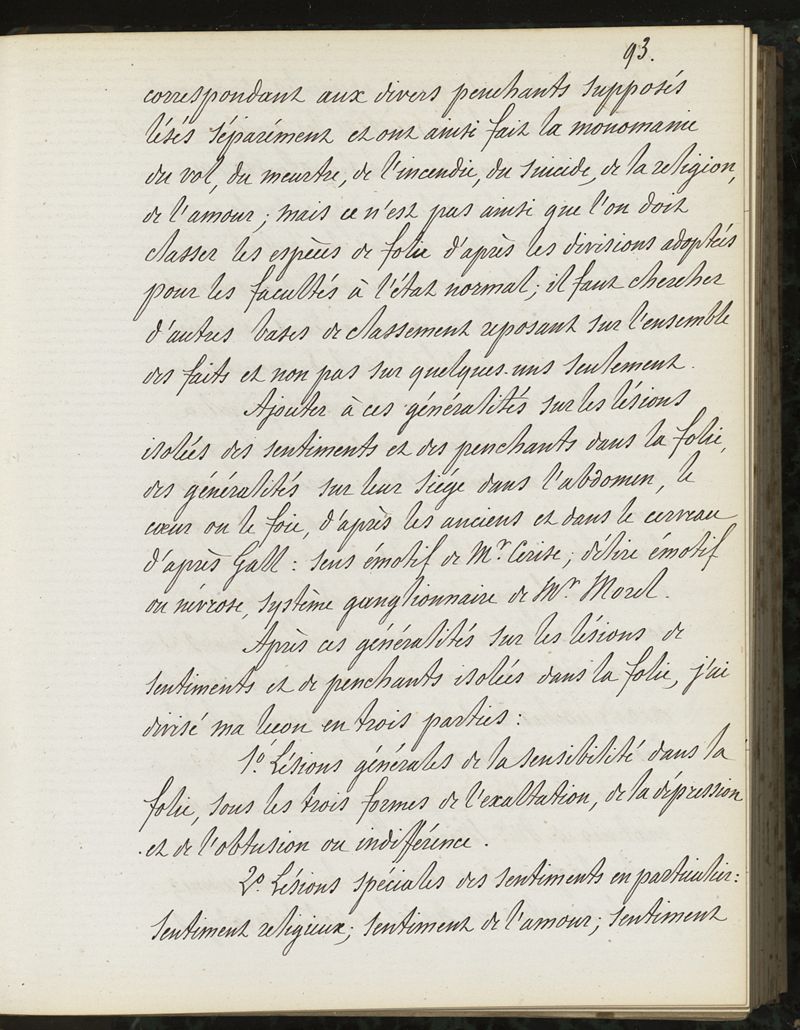 93.
correspondant aux divers penchants supposés
lésés séparément et ont ainsi fait la monomanie
du vol, du meurtre, de l'incendie, du suicide, de la religion,
de l'amour ; mais ce n'est pas ainsi que l'on doit
classer les espèces de folie d'après les divisions adoptées
pour les facultés à l'état normal ; il faut chercher
d'autres bases de classement reposant sur l'ensemble
des faits et non pas sur quelques-uns seulement.
Ajouter à ces généralités sur les lésions
isolées des sentiments et des penchants dans la folie,
des généralités sur leur siége dans l'abdomen, le
cœur ou le foie, d'après les anciens et dans le cerveau
d'après Gall : sens émotif de Mr. Cerise ; délire émotif
ou névrose, système ganglionnaire de Mr. Morel.
Après ces généralités sur les lésions de
sentiments et de penchants isolées dans la folie, j'ai
divisé ma lecon en trois parties :
1º. Lésions générales de la sensibilité dans la
folie, sous les trois formes de l'exaltation, de la dépression
et de l'obtusion ou indifférence.
2º. Lésions spéciales des sentiments en particulier :
sentiment religieux ; sentiment de l'amour ; sentiment